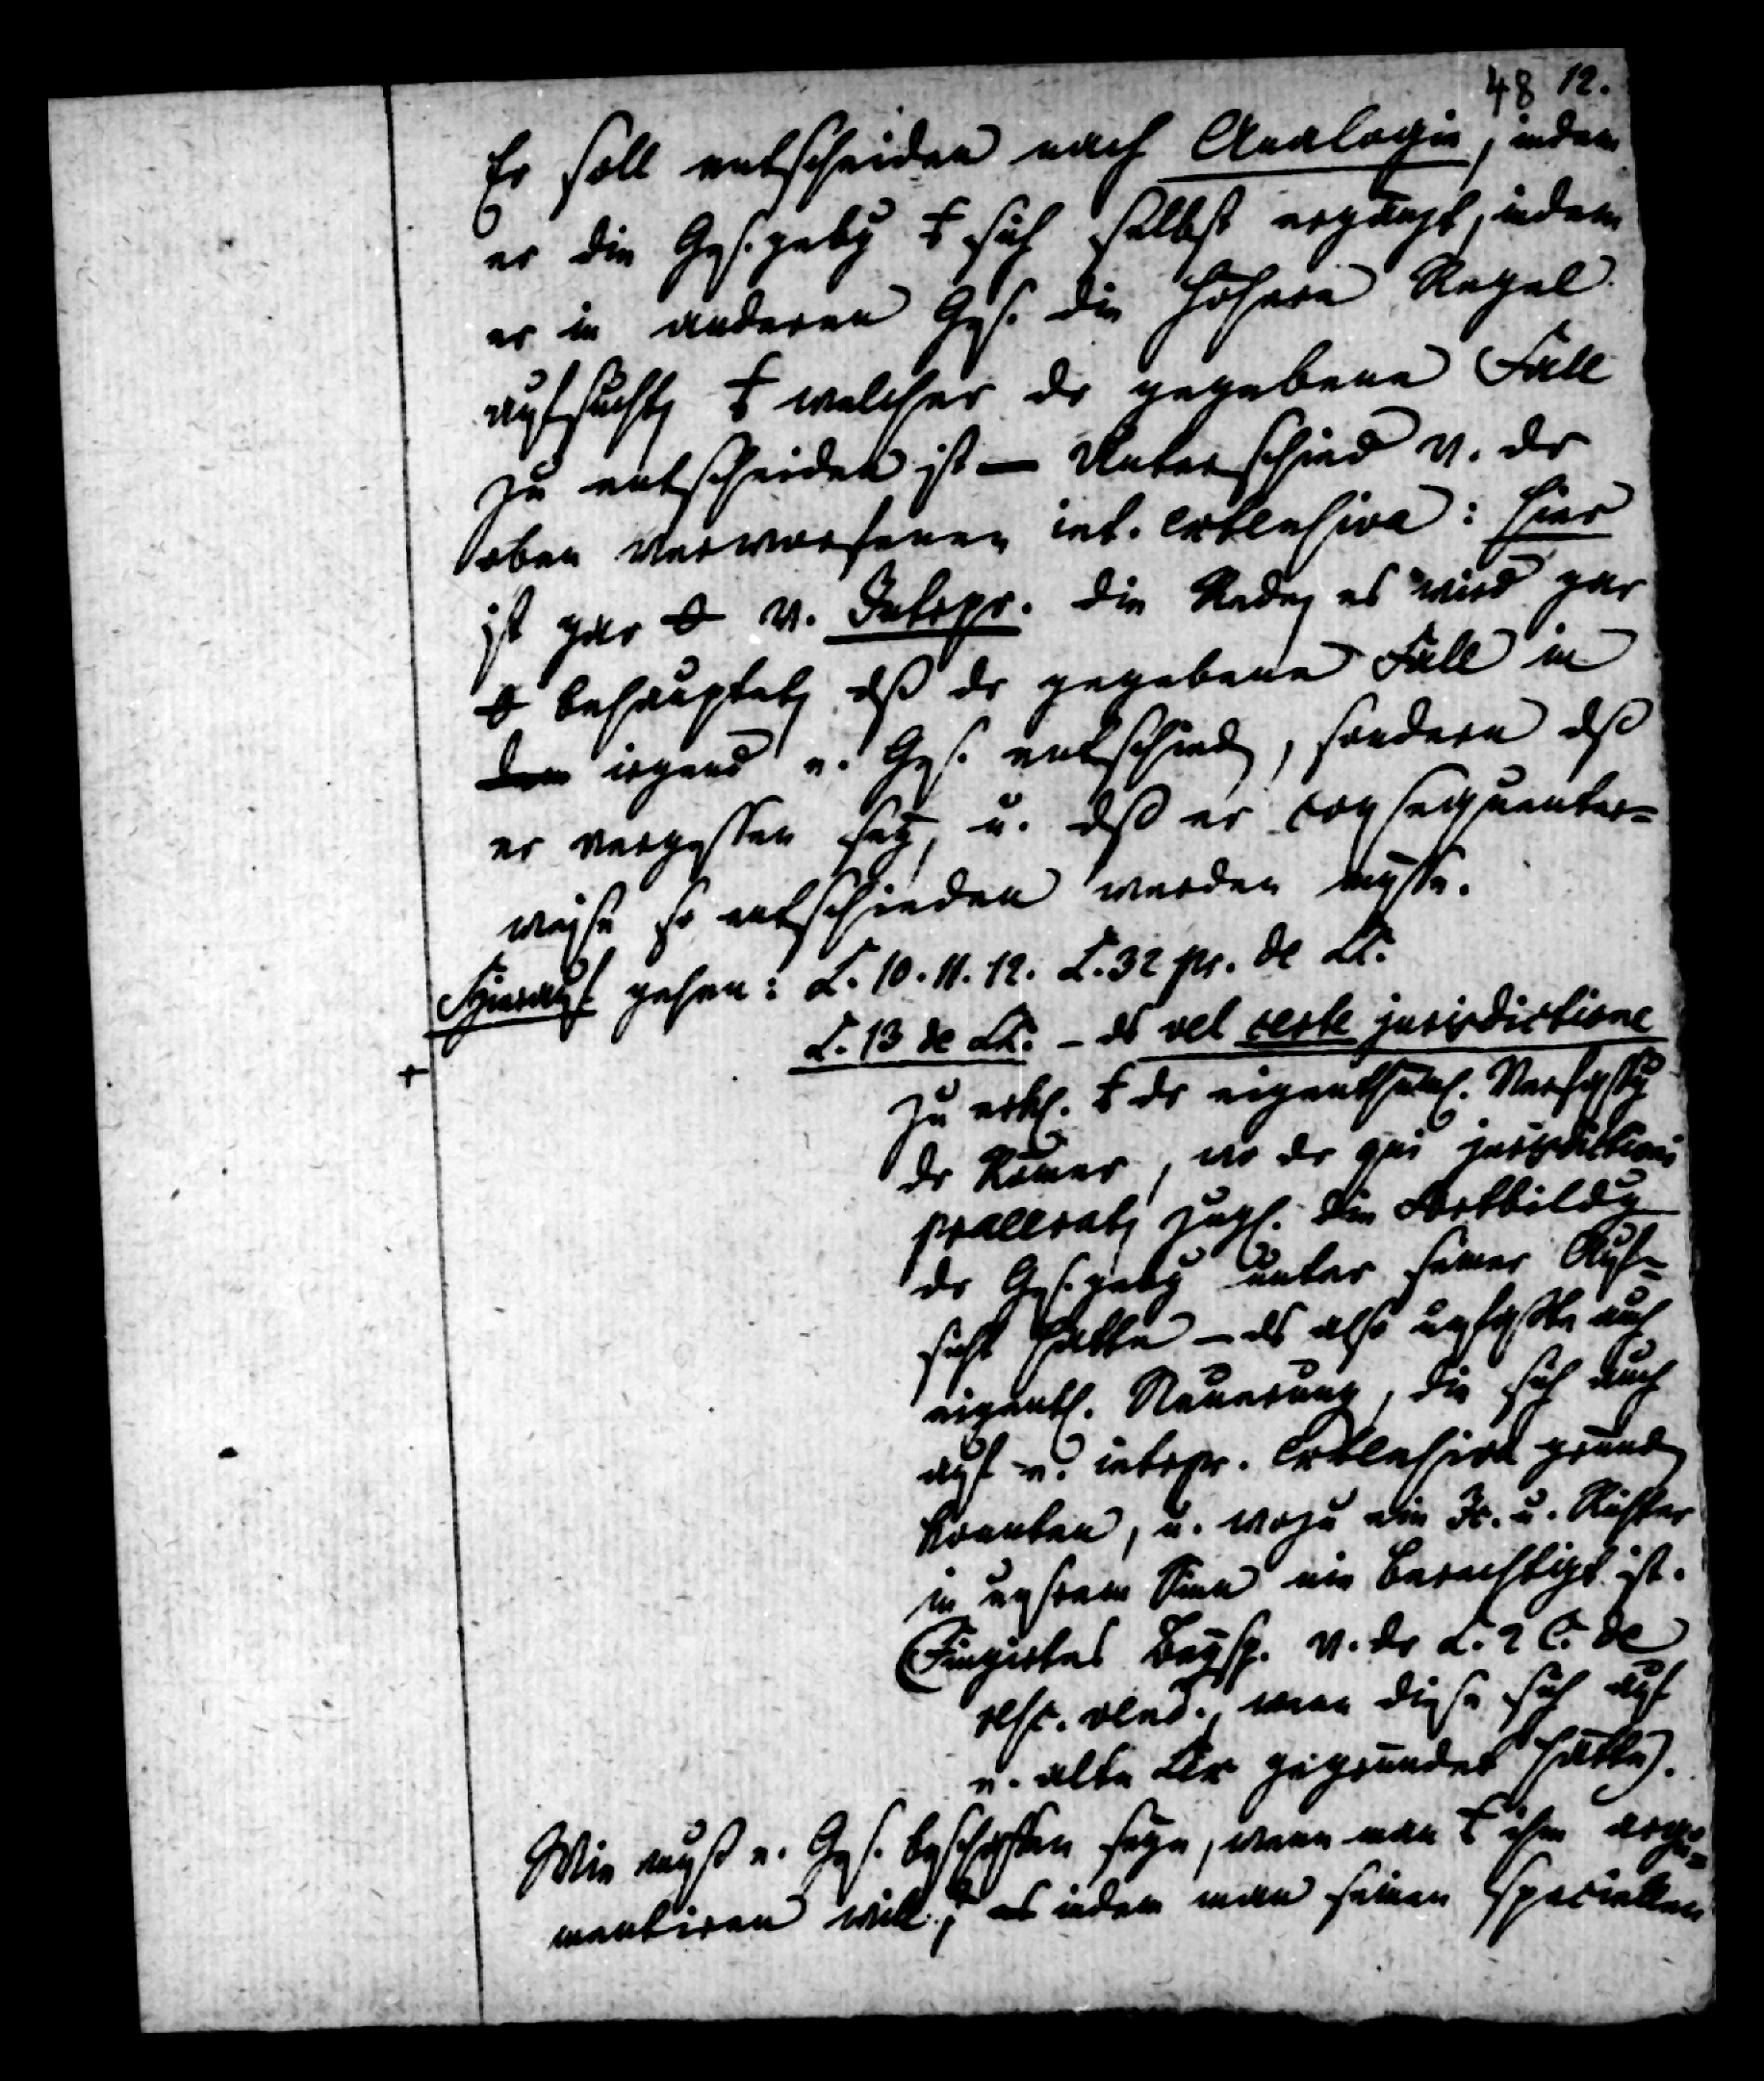 48 12.
Er soll entscheiden nach Analogie, indem
er die Ges.gebg ŧ sich selbst ergänzt, indem
er in anderen Ges. die höhere Regel
aufsucht, ŧ welcher dr gegebene Fall
zu entscheiden ist — Unterschied v. dr
oben verworfenen int. extensiva: hier
ist gar v. Interpr. die Rede, es wird gar
behauptet, dß dr gegebene Fall in
irgend e. Ges. entschied, sondern dß
er vergessen sey, u. dß er consequenter=
weise so entschieden werden müsse.
Hierauf gehen: L. 10. 11. 12. L. 32 pr. de LL.
L. 13 de LL. – ds vel certe jurisdictione
zu erkl. ŧ dr eigenthüml. Verfassg
dr Römer, wo dr qui jurisdictioni
praeerat, zugl. die Fortbildg
dr Ges.gebg unter seiner Auf=
sicht hatte – ds also umfaßte auch
eigentl. Neuerung, die sich auch
auf e. interpr. extensiva gründ
konnten, u. wozu ein Jc. u. Richter
in unsrem Sinn nie berechtigt ist.
(Fingirtes Beysp. v. dr L. 2 C. de
resc. vend., wenn diese sich auf
e. alte Lex gegründet hätte).
Wie muß e. Ges. beschaffen seyn, wenn man ŧ ihm argu=
mentiren will? indem man seinen speciellen